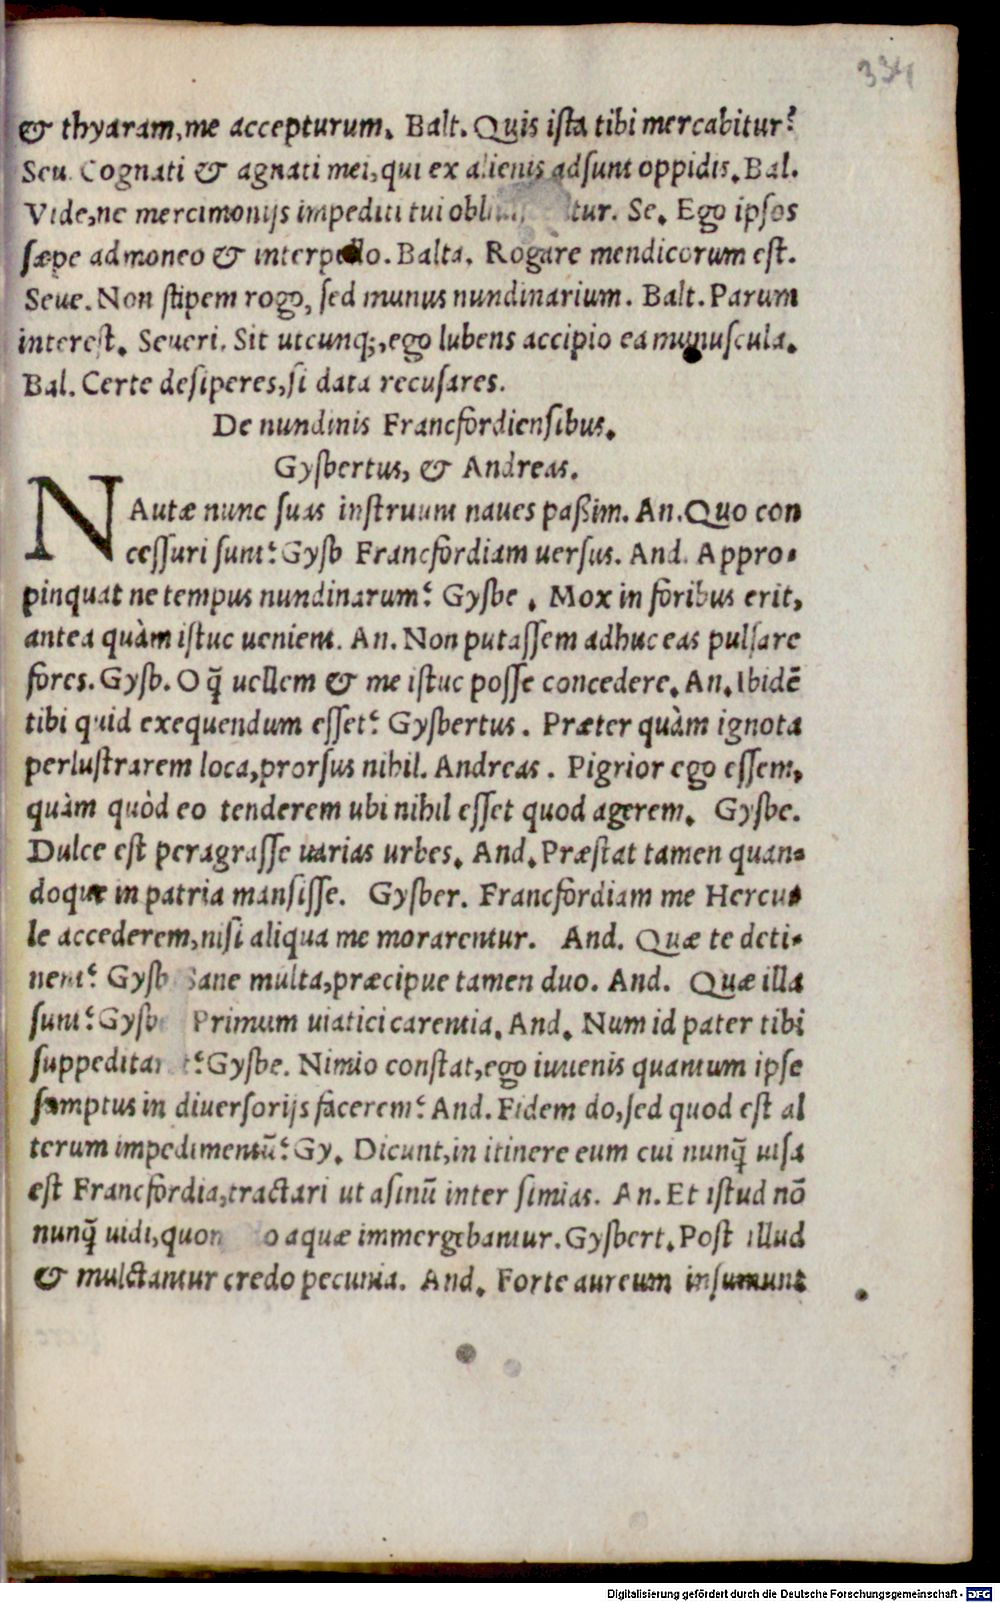 334
& thyaram, me accepturum. Balt. Quis ista tibi mercabitur?
Seu. Cognati & agnati mei, qui ex alienis adsunt oppidis. Bal.
Vide, ne mercimonijs impediti tui tur. Se. Ego ipsos
sæpe admoneo & interpello. Balta. Rogare mendicorum est.
Seue. Non stipem rogo, sed munus nundinarium. Balt. Parum
interest. Seueri. Sit utcunq;, ego lubens accipio ea munuscula.
Bal. Certe desiperes, si data recusares.
De nundinis Francfordiensibus.
Gysbertus, & Andreas.
NAutæ nunc suas instruunt naues paßim. An. Quo con
cessuri sunt? Gysb Francfordiam uersus. And. Appro-
pinquat ne tempus nundinarum? Gysbe. Mox in foribus erit,
antea quàm istuc ueniem. An. Non putassem adhuc eas pulsare
fores. Gysb. O q̃ uellem & me istuc posse concedere. An. Ibidē
tibi quid exequendum esset? Gysbertus. Præter quàm ignota
perlustrarem loca, prorsus nihil. Andreas. Pigrior ego essem,
quàm quòd eo tenderem ubi nihil esset quod agerem. Gysbe.
Dulce est peragrasse uarias urbes. And. Præstat tamen quan-
doque in patria mansisse. Gysber. Francfordiam me Hercu-
le accederem, nisi aliqua me morarentur. And. Quæ te deti-
nent? Gysb Sane multa, præcipue tamen duo. And. Quæ illa
sunt? Gysbe Primum uiatici carentia. And. Num id pater tibi
suppeditaret? Gysbe. Nimio constat, ego iuuenis quantum ipse
sumptus in diuersorijs facerem? And. Fidem do, sed quod est al
terum impedimentū? Gy. Dicunt, in itinere eum cui nunq̃ uisa
est Francfordia, tractari ut asinū inter simias. An. Et istud nō
nunq̃ uidi, quomodo aquæ immergebantur. Gysbert. Post illud
& mulctantur credo pecunia. And. Forte aureum insumunt
Digitalisierung gefördert durch die Deutsche Forschungsgemeinschaft - DFG